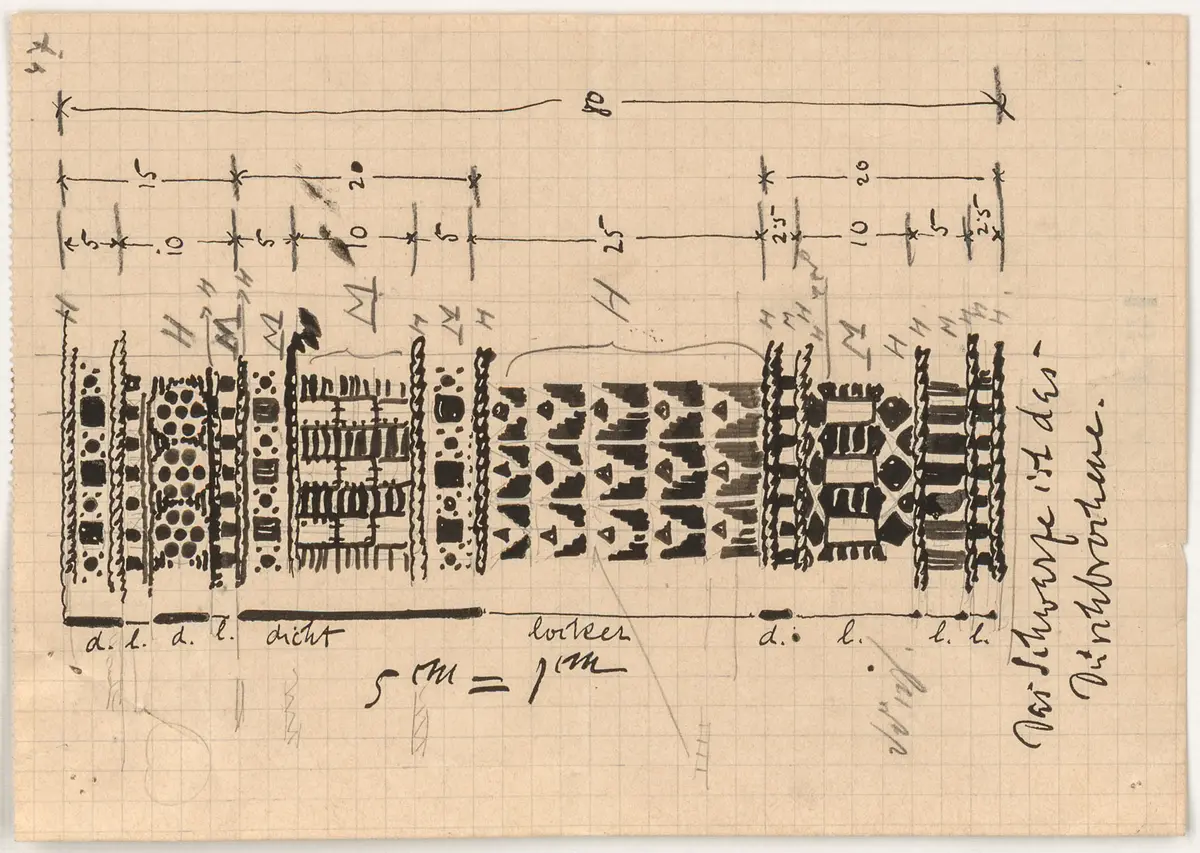 80
15 20 20
5 10 5 10 5 25 2.5 10 5 2.5
H H H H
M M M M
H
M H H M H M H H H
d. l. d. l. dicht locker d. l. l. l.
5 cm = 1 cm
Das Schwarze ist das
Durchbrochene.